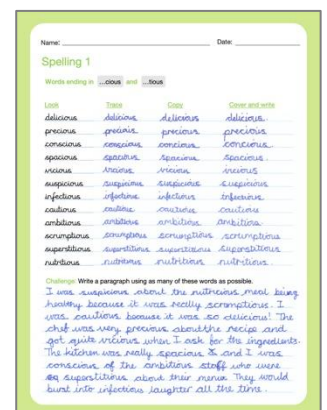 Name: Date:
Spelling 1
Words ending in ...cious and ...tious
Look Trace Copy Cover and write
delicious delicious delicious delicious.
precious precious precious precious
conscious conscious concious concious.
spacious spacious spacious spacious.
vicious vicious vicious vicious
suspicious suspicious suspicious suspicious
infectious infectious infectious infectious.
cautious cautious cautious cautiou
ambitious ambitious ambitious ambitious.
scrumptious scrumptious scrumptious scrumptious
superstitious superstitious superstitious superstitious.
nutritious nutritious nutritious nutritious
Challenge Write a paragraph using as many of these words as possible.
I was suspicious about the nutricious meal being
healthy because it was really scromptious. I
was cautious because it was so delicious! The
chef was very precious about the recipe and
got quite vicious when I ask for the ingredients.
The kitchen was really spacious & and I was
conscious of the ambitious staff who were
superstitious about their menus. They would
burst into infectious laughter all the time.